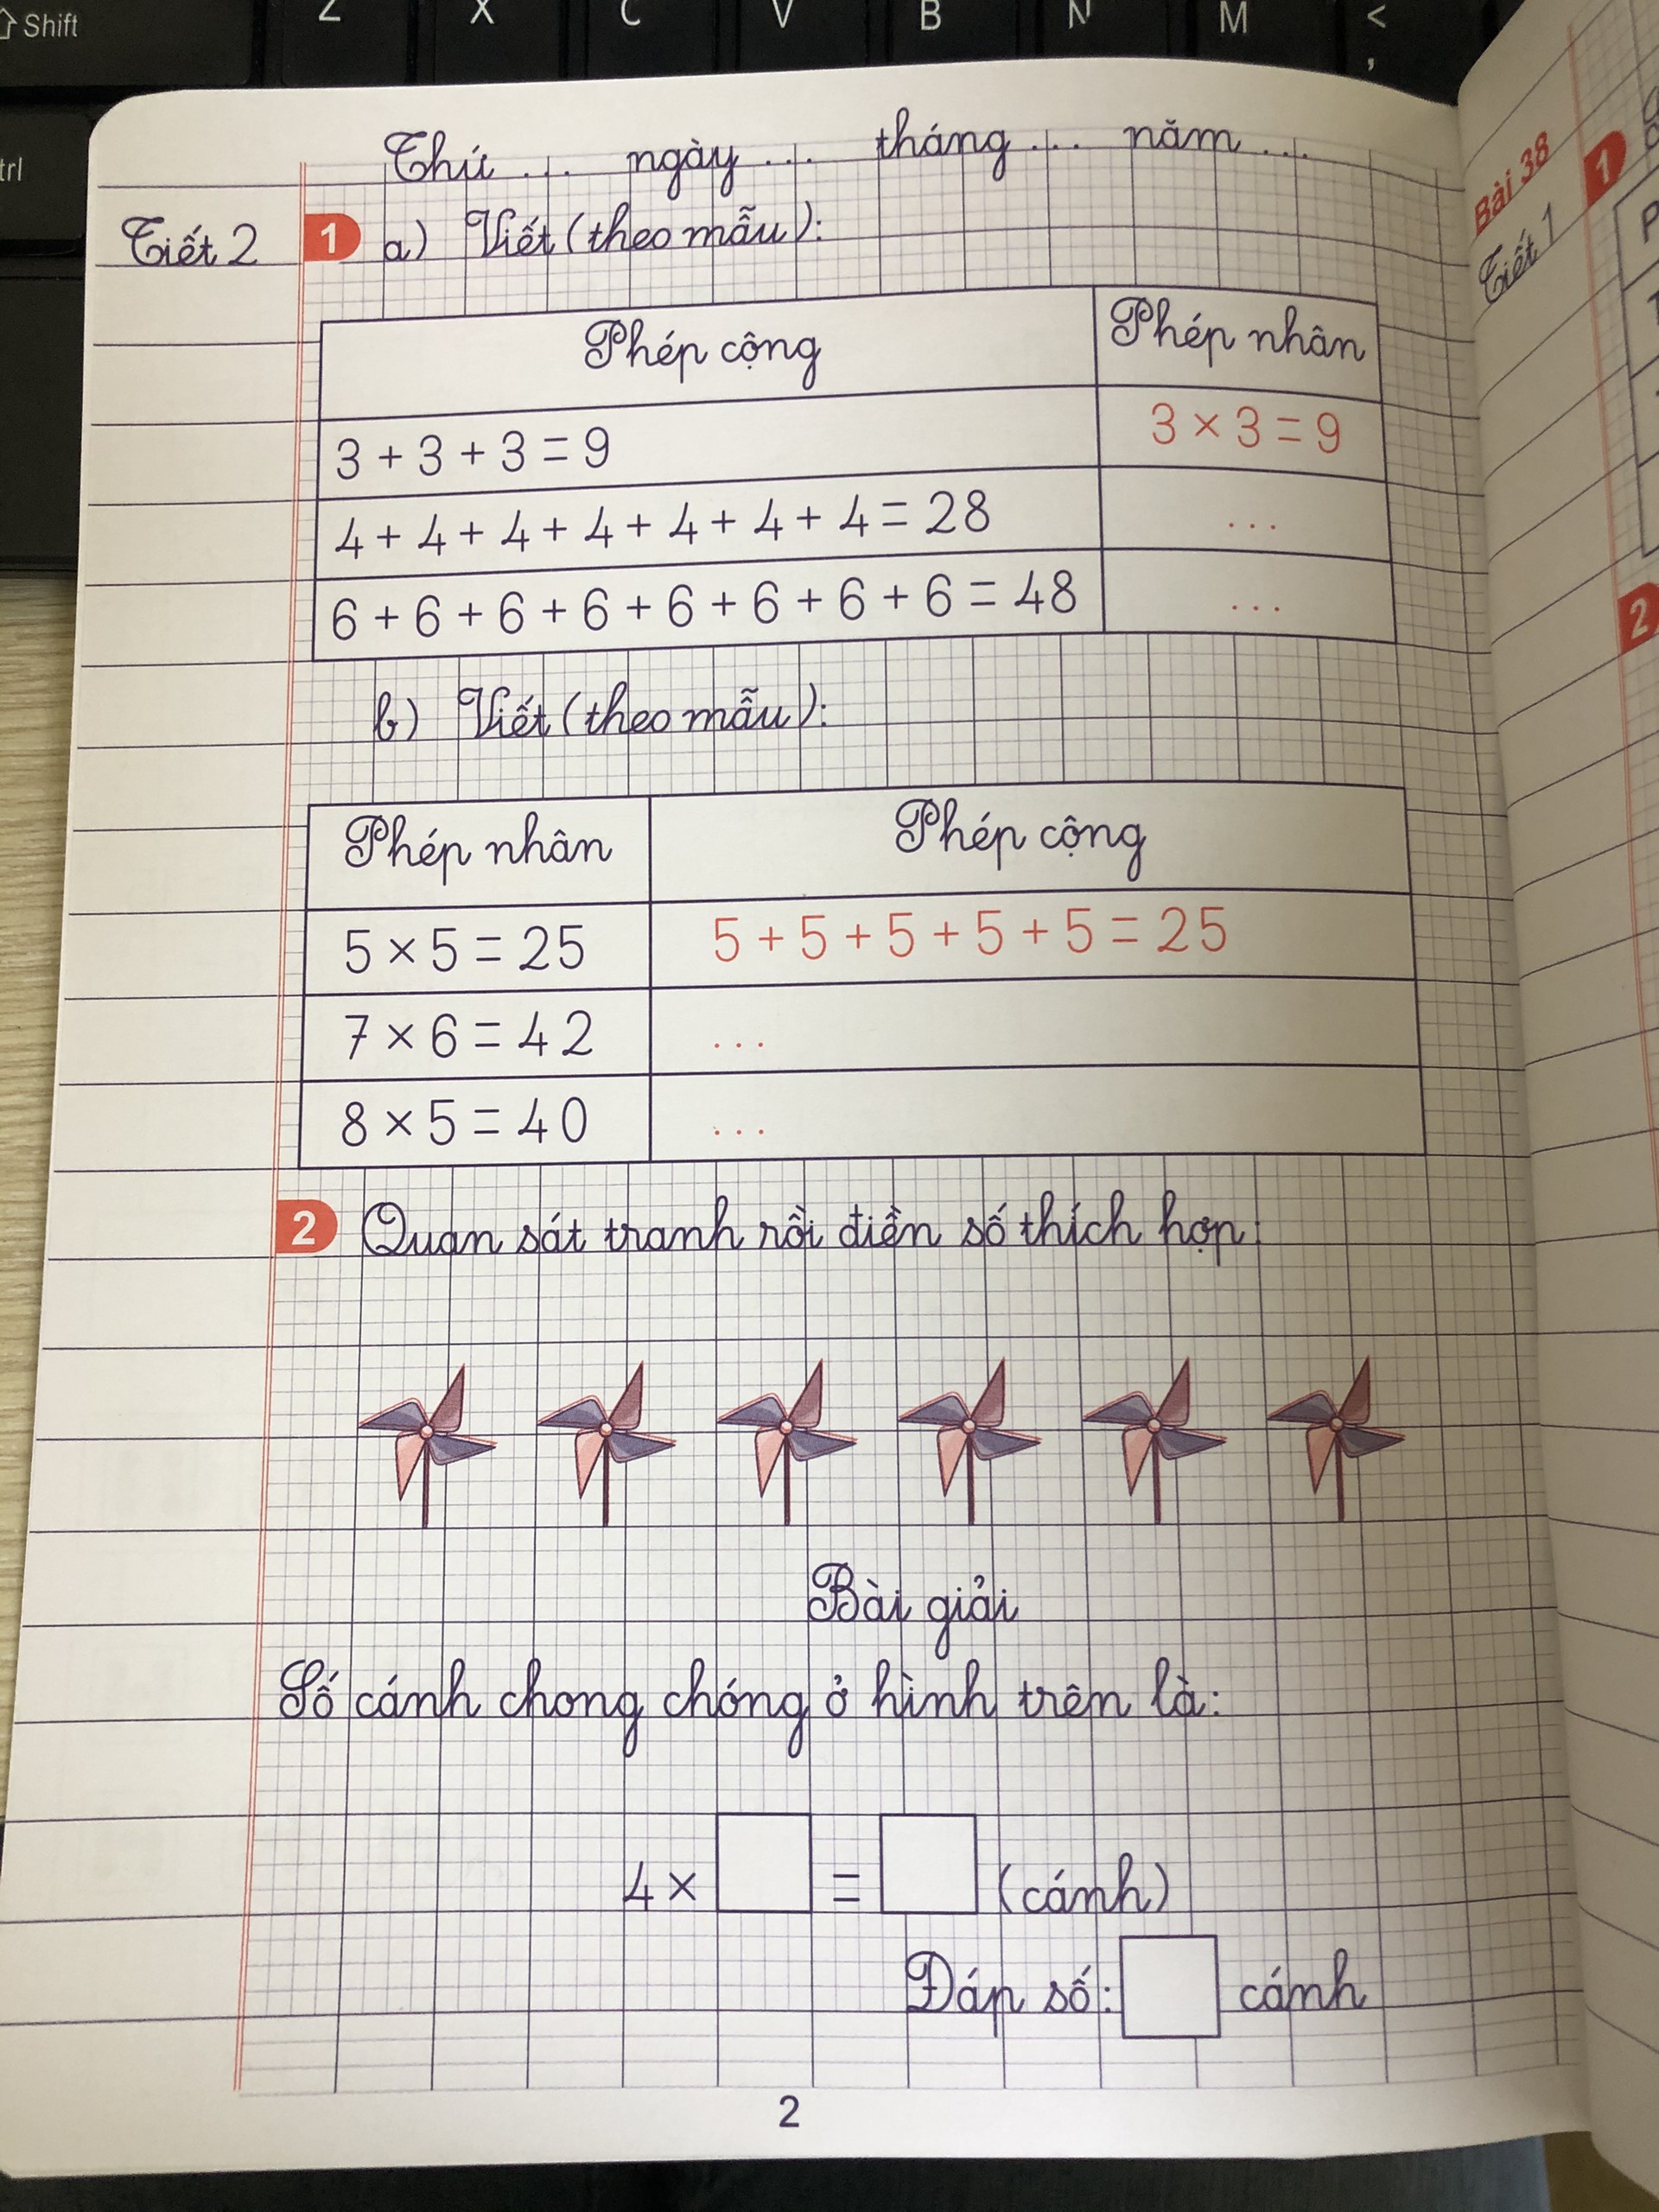 Shift
Z X C V B N M <
,
trl
Thứ ... ngày ... tháng ... năm ...
Tiết 2 1 a) Viết (theo mẫu):
Phép cộng Phép nhân
3 + 3 + 3 = 9 3 × 3 = 9
4 + 4 + 4 + 4 + 4 + 4 + 4 = 28 ...
6 + 6 + 6 + 6 + 6 + 6 + 6 + 6 = 48 ...
b) Viết (theo mẫu):
Phép nhân Phép cộng
5 × 5 = 25 5 + 5 + 5 + 5 + 5 = 25
7 × 6 = 42 ...
8 × 5 = 40 ...
2 Quan sát tranh rồi điền số thích hợp:
Bài giải
Số cánh chong chóng ở hình trên là:
4 × = (cánh)
Đáp số: cánh
2
Bài 38
Tiết 1
1
2